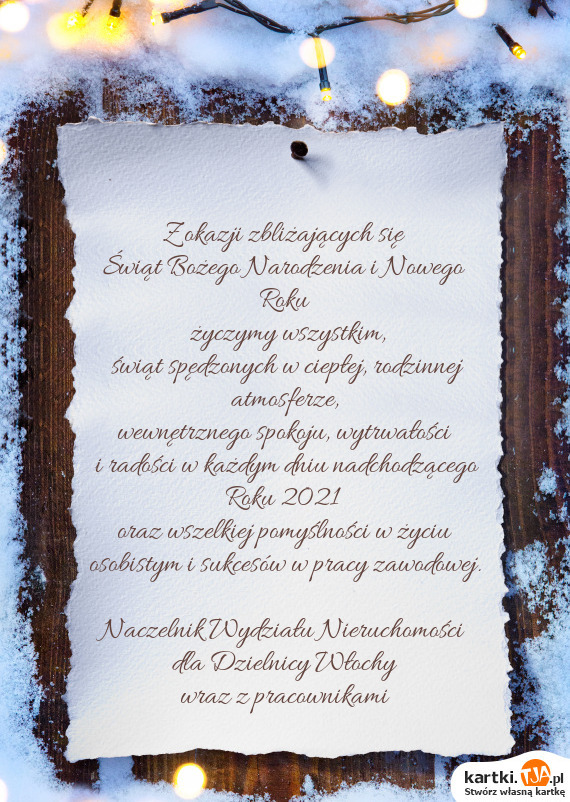 Z okazji zbliżających się
Świąt Bożego Narodzenia i Nowego
Roku
życzymy wszystkim,
świąt spędzonych w ciepłej, rodzinnej
atmosferze,
wewnętrznego spokoju, wytrwałości
i radości w każdym dniu nadchodzącego
Roku 2021
oraz wszelkiej pomyślności w życiu
osobistym i sukcesów w pracy zawodowej.
Naczelnik Wydziału Nieruchomości
dla Dzielnicy Włochy
wraz z pracownikami
kartki.TJA.pl
Stwórz własną kartkę